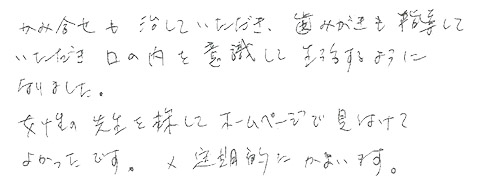 かみ合せも治していただき、歯みがきも指導して
いただき口の内を意識して生活するように
なりました。
女性の先生を探してホームページで見つけて
よかったです。 定期的にかよいます。